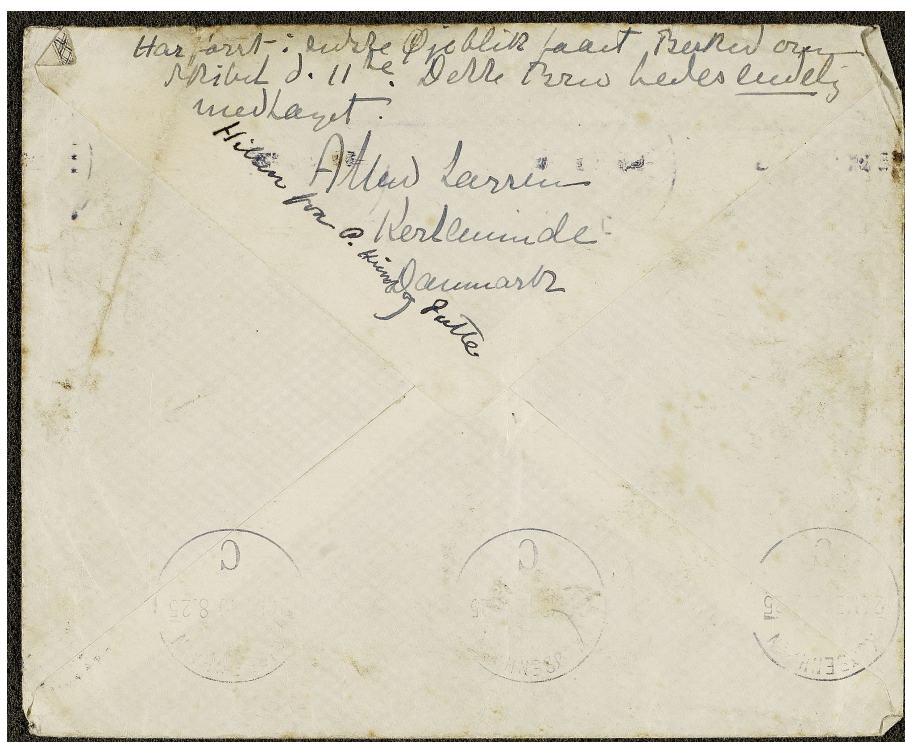 Har først i sidste Øjeblik faaet Besked om
Skibet d. 11te. Dette Brev bedes endelig
medtaget.
Hilsen fra
og Putte
Alfred Larsen
Kerteminde
Danmark
C
8.25
C
C